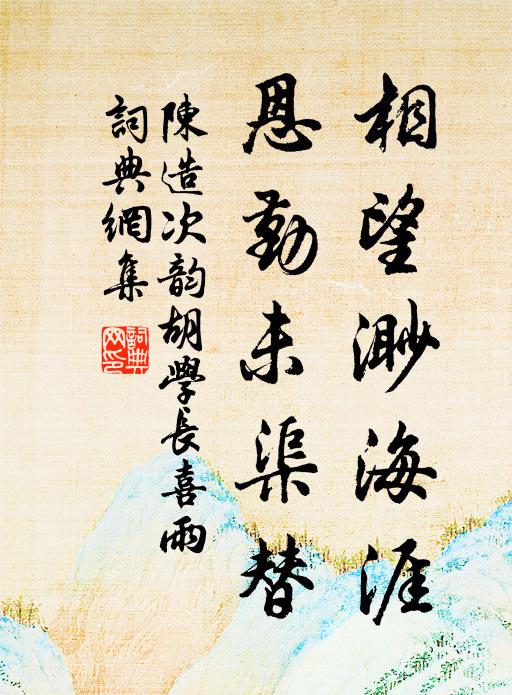 相望渺海涯
恩勤未渠替
陳造次韵胡學長喜雨
詞典網集
詞典網印